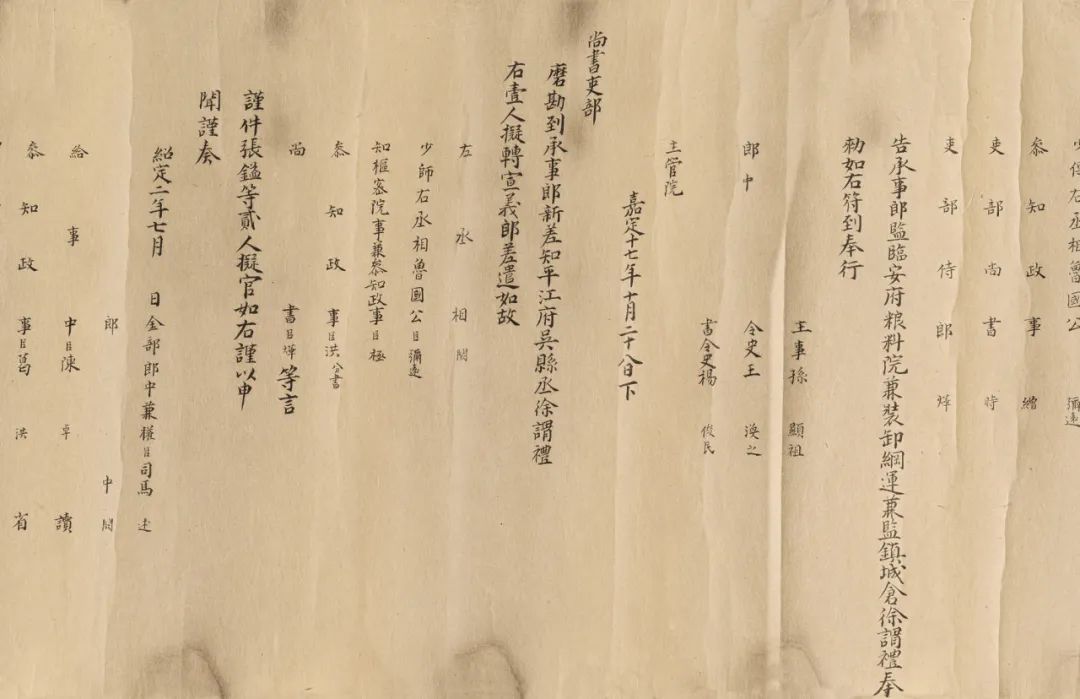 少保右丞相魯國公 彌遠
叅知政事 繒
吏部尚書 時
吏部侍郎 燁
告承事郎監臨安府粮料院兼裝卸綱運兼監鎮城倉徐謂禮奉
勑如右符到奉行
主事孫 顯祖
郎中 令史王 渙之
書令史楊 俊民
主管院
嘉定十七年十月二十八日下
尚書吏部
磨勘到承事郎新差知平江府吳縣丞徐謂禮
右壹人擬轉宣義郎差遣如故
左丞相 闕
少師右丞相魯國公臣彌遠
知樞密院事兼叅知政事臣極
叅知政事臣洪 分書
尚書臣燁等言
謹件張鎰等貳人擬官如右謹以申
聞謹奏
紹定二年七月 日金部郎中兼權臣司馬 述
郎中 闕
給事中臣陳 卓 讀
叅知政事臣葛 洪 省